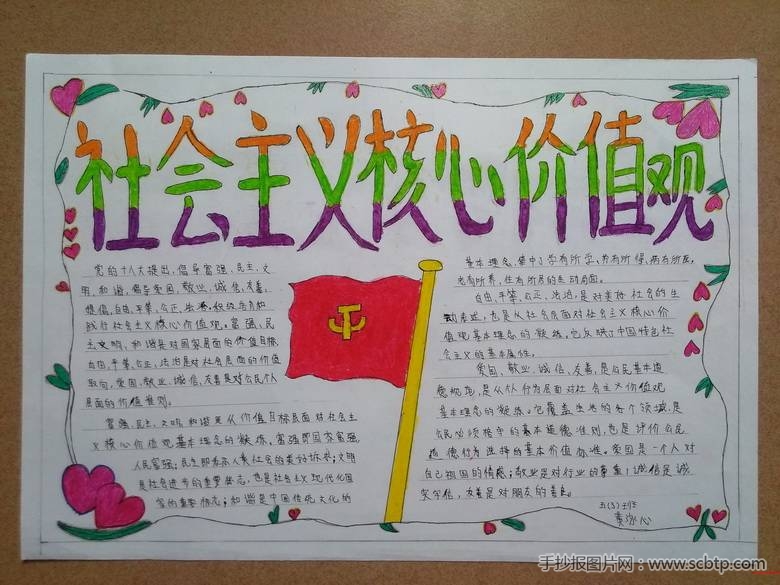 社会主义核心价值观
党的十八大提出,倡导富强、民主、文
明、和谐,倡导自由、平等、公正、法治,积极培育和
践行社会主义核心价值观。富强、民
主、文明、和谐是对国家层面的价值目标
自由,平等,公正,法治是对社会层面的价值
取向,爱国,敬业,诚信,友善是对公民个人
层面的价值准则。
富强,民主,文明,和谐是从价值目标层面对社会主
义核心价值观基本理念的凝炼。富强即国家富强,
人民富强;民主即
是社会进步的重要标志,也是社会主义现代化国
家的重要标志;和谐是中国传统文化的
基本理念,集中了学有所学、劳有所得、病有所医,
老有所养,住有所居的生动局面。
自由,平等,公正,法治,是对美好社会的生
动表述,也是从社会层面对社会主义核心价
值观基本理念的凝练。它反映了中国特色社
会主义的基本属性。
爱国,敬业,诚信,友善,是公民基本道
德规范,是从个人行为层面对社会主义价值观
基本理念的凝练。它覆盖生活的各个领域,是
公民必须恪守的基本道德准则,也是评价公民
道德行为选择的基本价值标准。爱国是一个人对
自己祖国的情感;敬业是对行业的尊重;诚信是诚
实守信,友善是对朋友的善良。
五(3)班
手抄报图片网:www.scbtp.com